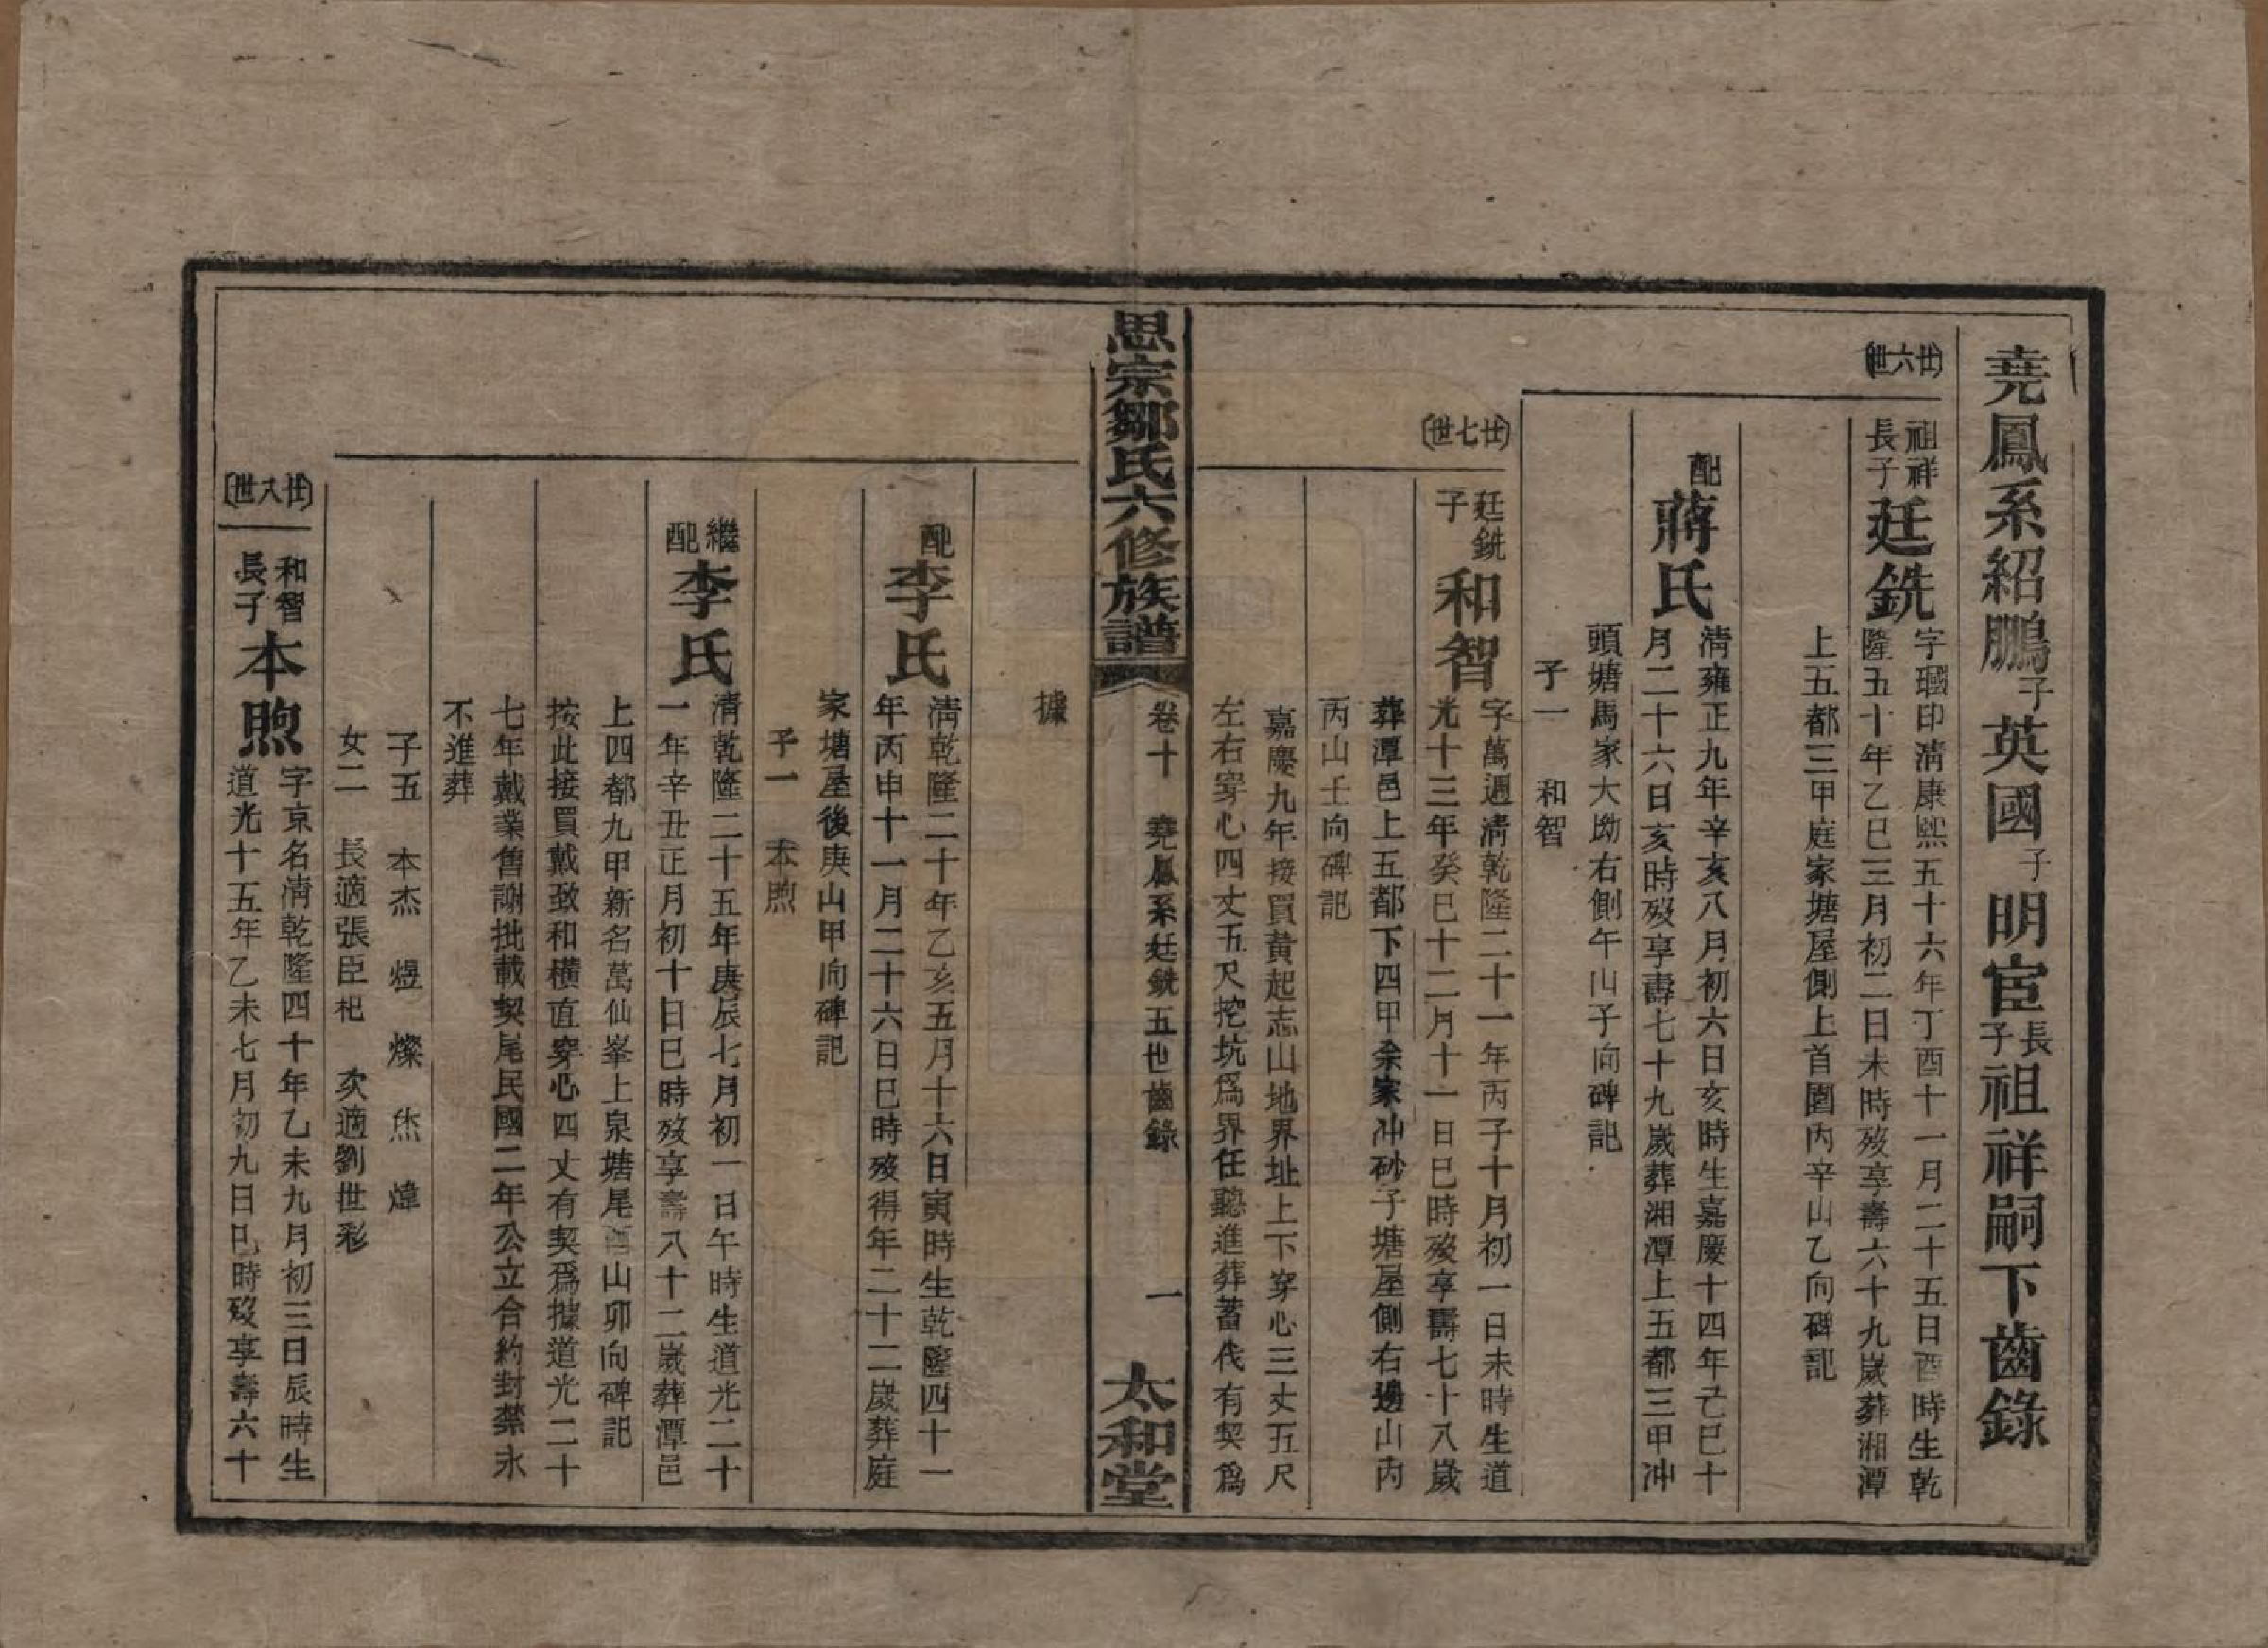 堯鳳系紹鵬子英國子明宦長子祖祥嗣下齒錄
廿六世
祖祥長子廷銑
字瓛印清康熙五十六年丁酉十一月二十五日酉時生乾
隆五十年乙巳三月初二日未時歿享壽六十九歲葬湘潭
上五都三甲庭家塘屋側上首園內辛山乙向碑記
配蔣氏
清雍正九年辛亥八月初六日亥時生嘉慶十四年己巳十
月二十六日亥時歿享壽七十九歲葬湘潭上五都三甲冲
頭塘馬家大坳右側午山子向碑記
子一 和智
廿七世
廷銑子和智
字萬週清乾隆二十一年丙子十月初一日未時生道
光十三年癸巳十二月十一日巳時歿享壽七十八歲
葬潭邑上五都下四甲余家冲砂子塘屋側右邊山內
丙山壬向碑記
嘉慶九年接買黃起志山地界址上下穿心三丈五尺
左右穿心四丈五尺挖坑爲界任聽進葬蓄伐有契爲
思宗鄒氏六修族譜
卷十 堯鳳系廷銑五世齒錄 一
太和堂
據
配李氏
清乾隆二十年乙亥五月十六日寅時生乾隆四十一
年丙申十一月二十六日巳時歿得年二十二歲葬庭
家塘屋後庚山甲向碑記
子一 本煦
繼配李氏
清乾隆二十五年庚辰七月初一日午時生道光二十
一年辛丑正月初十日巳時歿享壽八十二歲葬潭邑
上四都九甲新名萬仙峯上泉塘尾酉山卯向碑記
按此接買戴致和橫直穿心四丈有契爲據道光二十
七年戴業售謝批載契尾民國二年公立合約封禁永
不進葬
子五 本杰 煜 燦 烋 煒
女二 長適張臣杞 次適劉世彩
廿八世
和智長子本煦
字京名清乾隆四十年乙未九月初三日辰時生
道光十五年乙未七月初九日巳時歿享壽六十